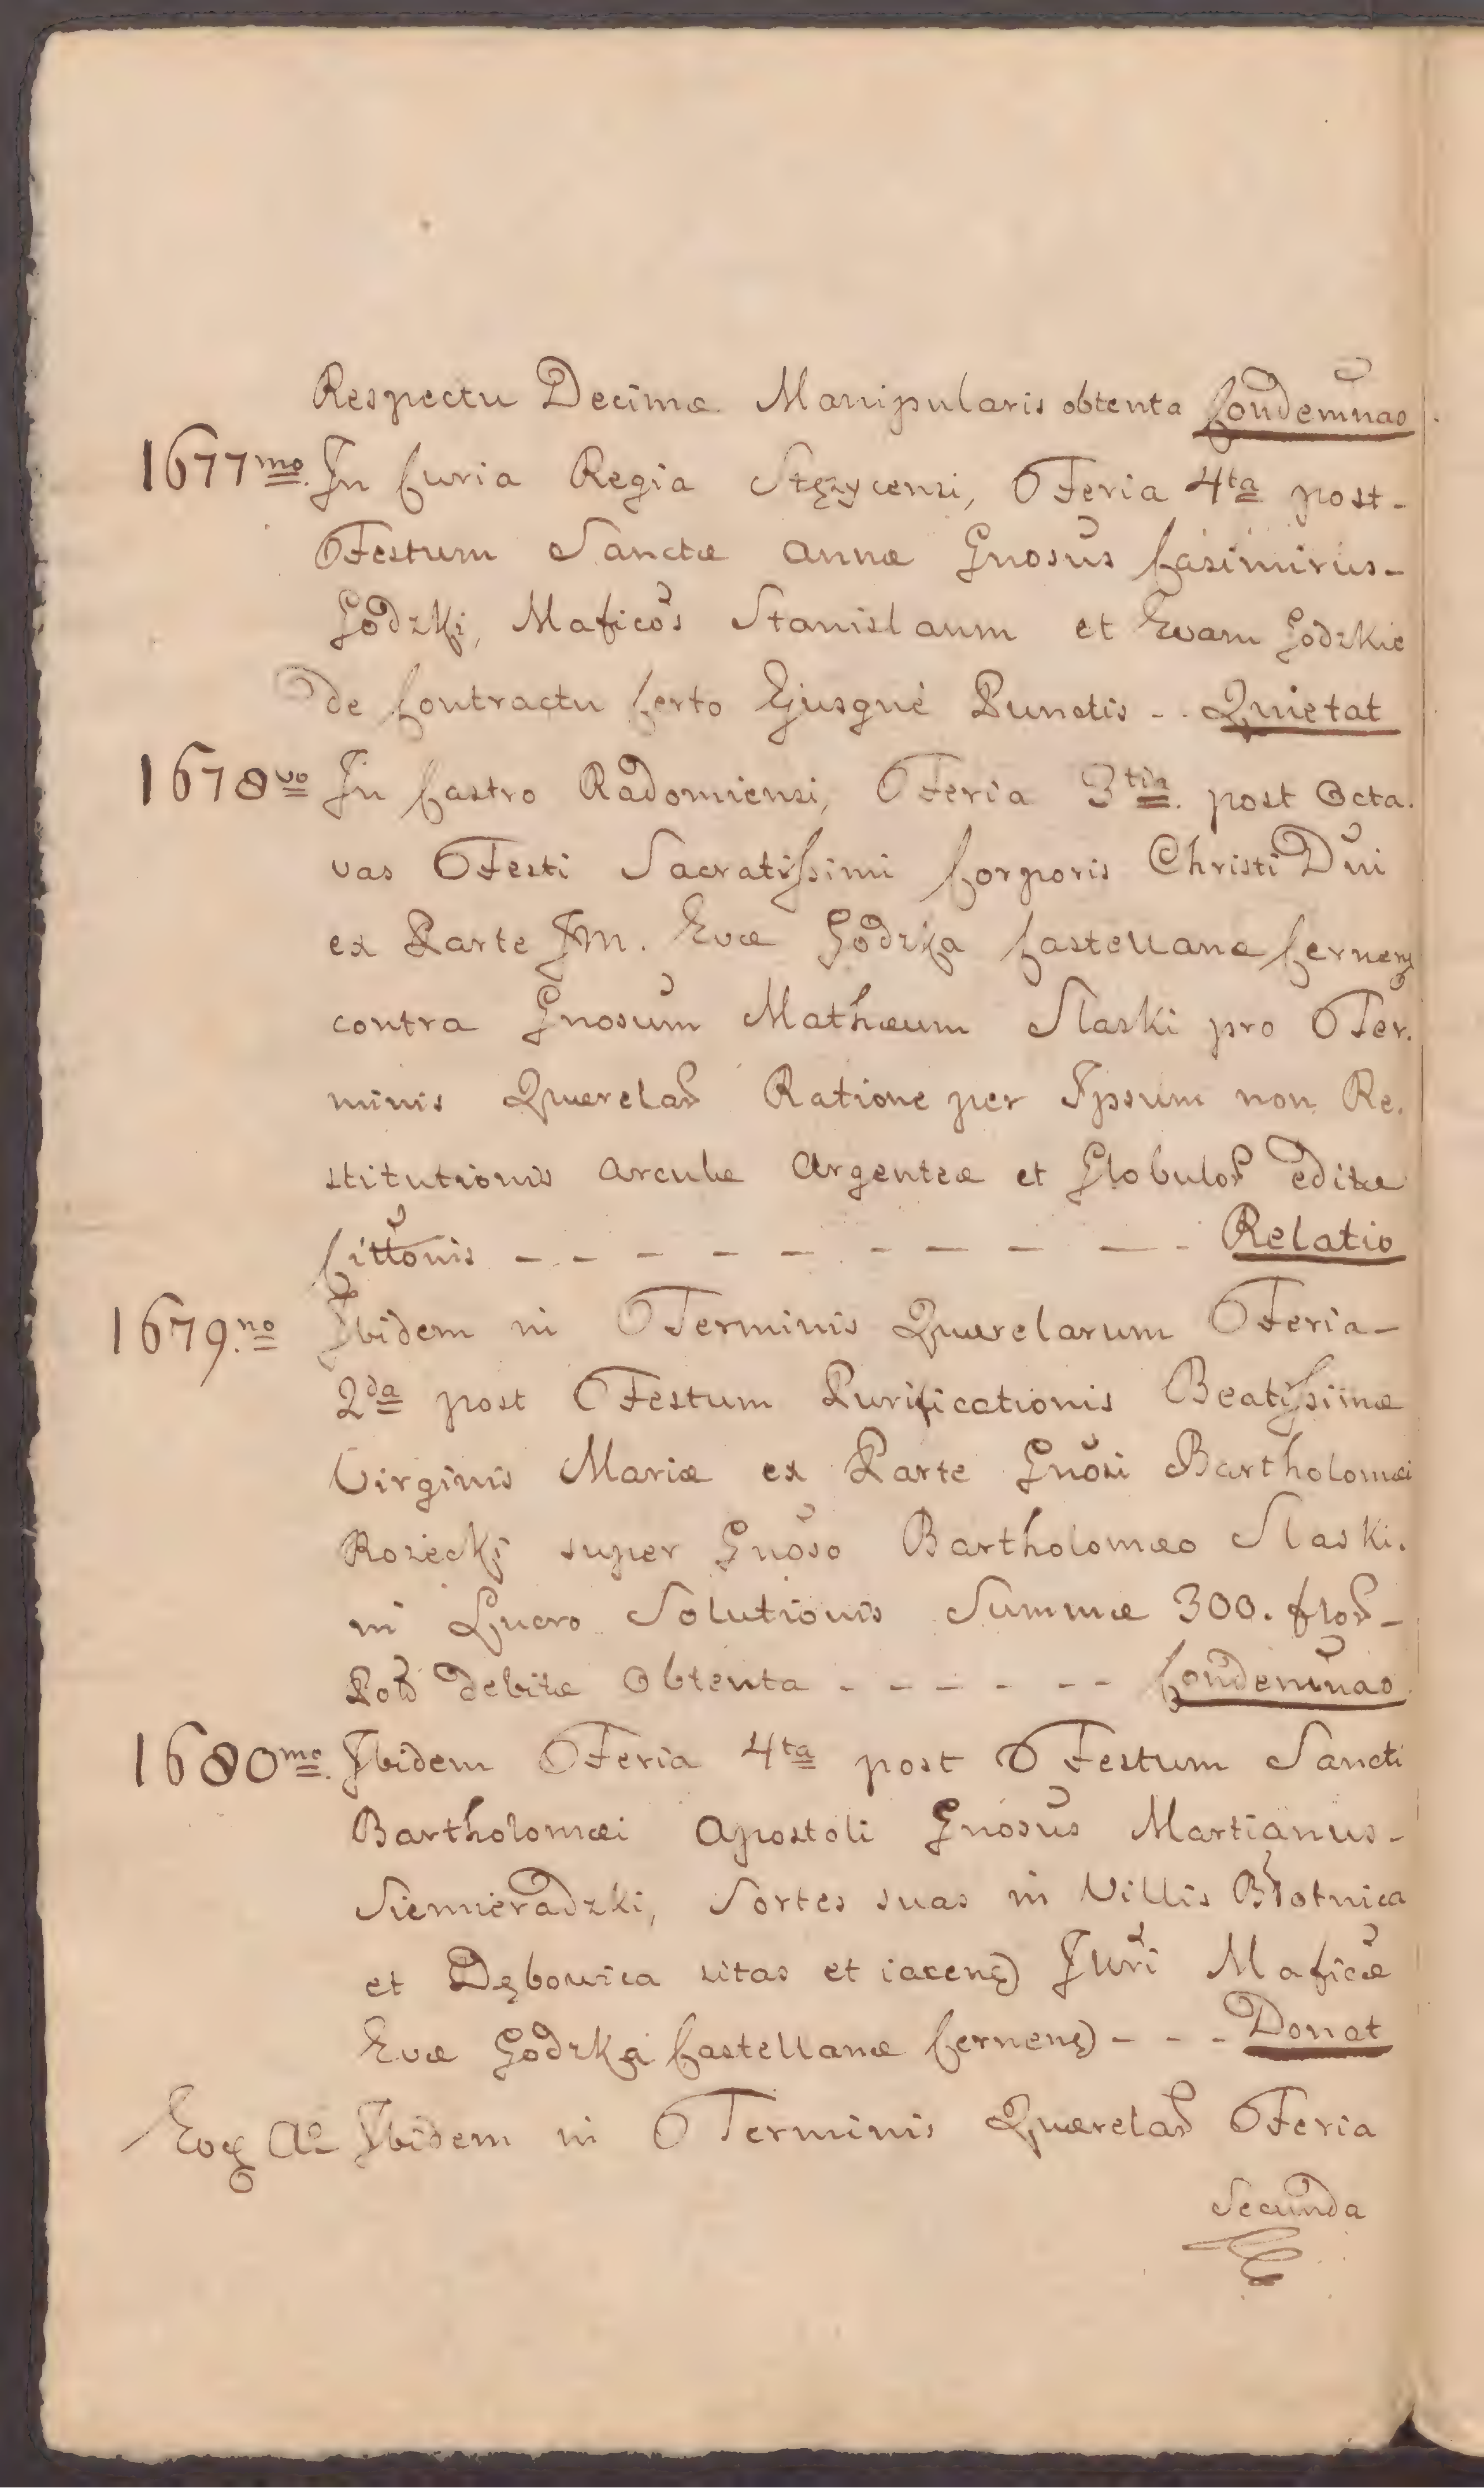 Respectu Decimæ Manipularis obtenta Condemnao
1677mo. In Curia Regia Stężycensi, Feria 4ta post-
Festum Sanctæ Annæ Gnosus Casimirus-
Godzki, Maficos Stanislaum et Evam Godzkie
de Contractu Certo Ejusque Punctis - - Quietat
1678vo In Castro Radomiensi, Feria 3tia. post Octa.
vas Festi Sacratissimi Corporis Christi Dni
ex Parte JM. Evæ Godzka Castellanæ Cernen
contra Gnosum Mathæum Slaski pro Ter.
minis Querelar Ratione per Ipsum non Re.
stitutionis Arculæ Argenteæ et Globulor editæ
Cittonis - - - - - - - - - - Relatio
1679.no Ibidem in Terminis Querelarum Feria-
2da post Festum Purificationis Beatissimæ
Virginis Mariæ ex Parte Gnosi Bartholomæi
Rozecki super Gnoso Bartholomæo Slaski.
in Lucro Solutionis Summæ 300. flor-
Pol debitæ Obtenta - - - - - - Condemnao
1680mo. Ibidem Feria 4ta post Festum Sancti
Bartholomæi Apostoli Gnosus Martianus-
Siemieradzki, Sortes suas in Villis Błotnica
et Dębowica sitas et iacen Juri Maficæ
Evæ Godzka Castellanæ Cernen - - - Donat
Eoq Ao Ibidem in Terminis Querelar Feria
Secunda